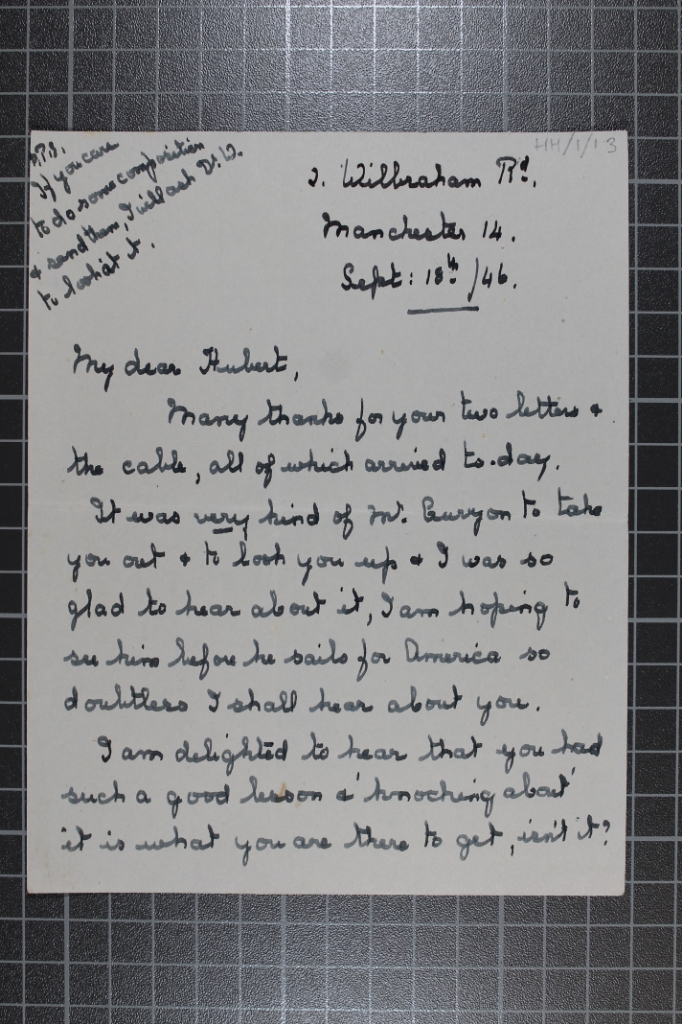 HH/1/13
P.S.
If you care
to do some composition
& send them, I will ask Dr. W.
to look at it.
2. Wilbraham Rd.
Manchester 14.
Sept: 18th /46.
My dear Hubert,
Many thanks for your two letters &
the cable, all of which arrived to-day.
It was very kind of Mr. Curzon to take
you out & to look you up & I was so
glad to hear about it, I am hoping to
see him before he sails for America so
doubtless I shall hear about you.
I am delighted to hear that you had
such a good lesson & 'knocking about'
it is what you are there to get, isn't it?